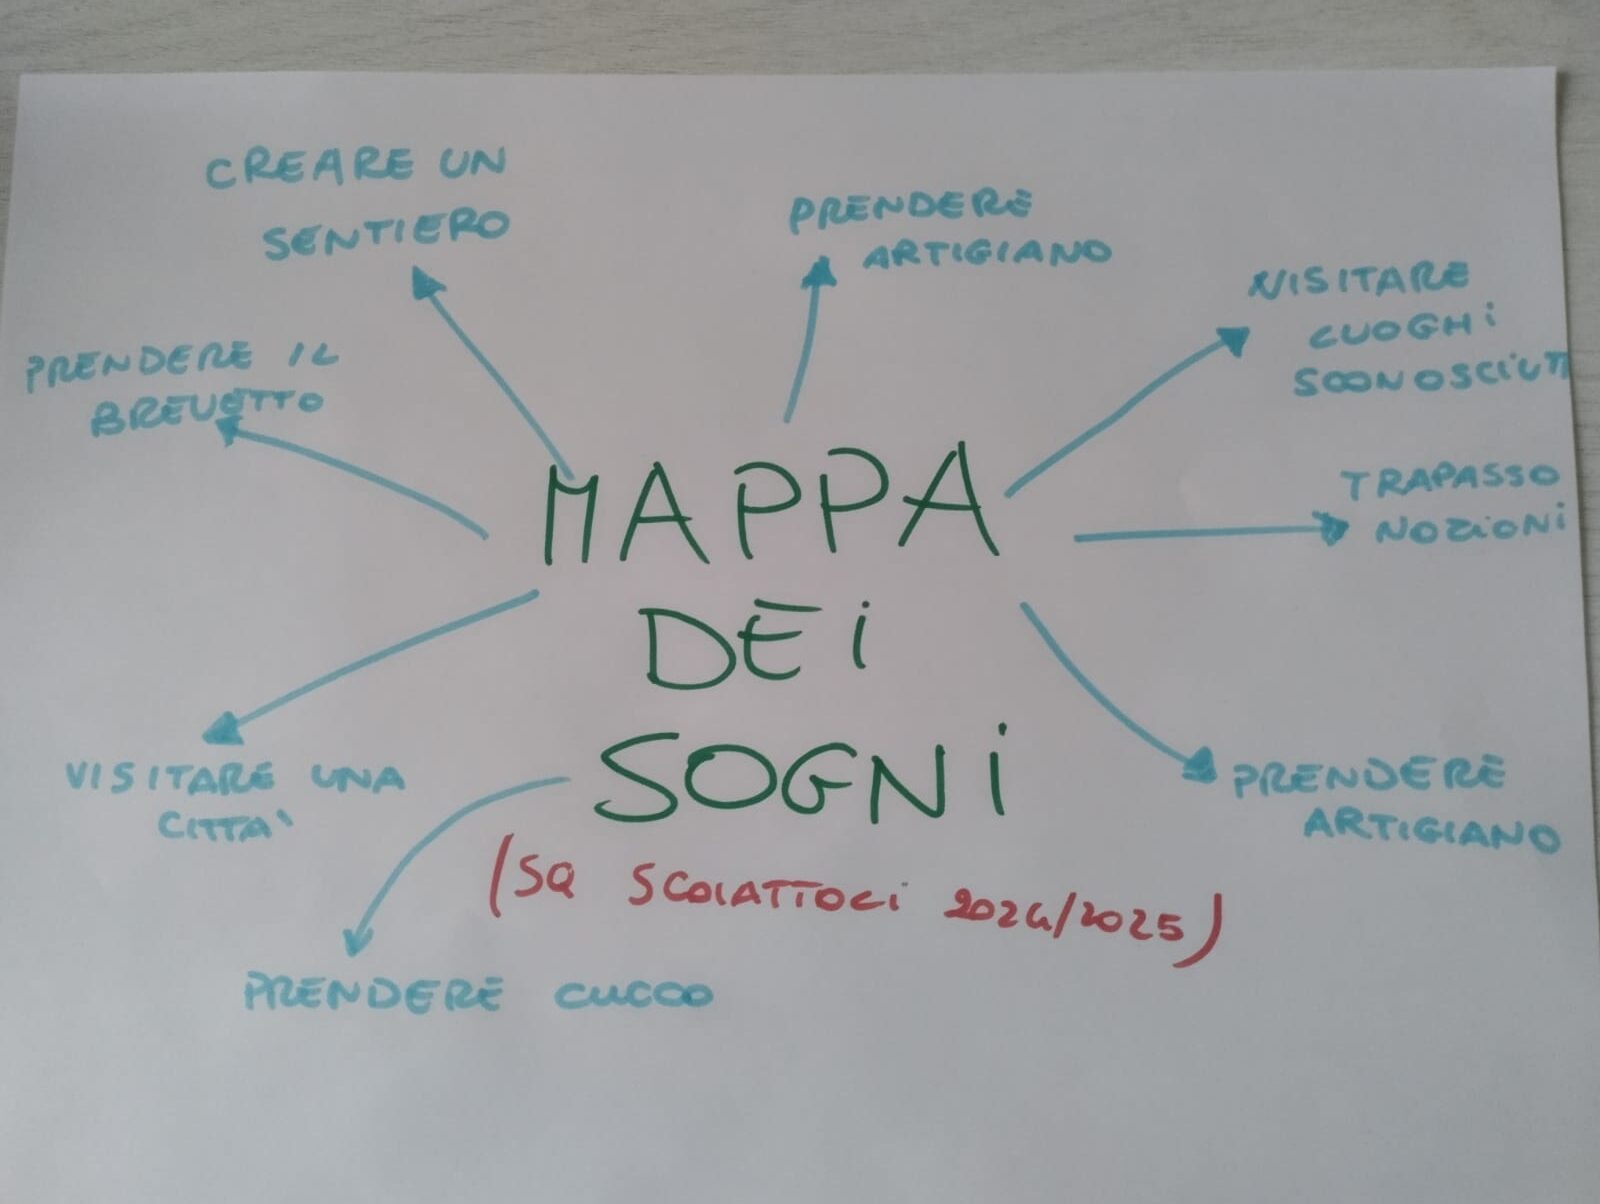 CREARE UN
SENTIERO
PRENDERE
ARTIGIANO
VISITARE
CUOGHi
SCONOSCIUTI
PRENDERE IL
BREVETTO
TRAPASSO
NOZIONi
MAPPA
DEi
SOGNi
(SQ SCOIATTOLi 2024/2025)
VISITARE UNA
CITTA'
PRENDERE
ARTIGIANO
PRENDERE CUCCO